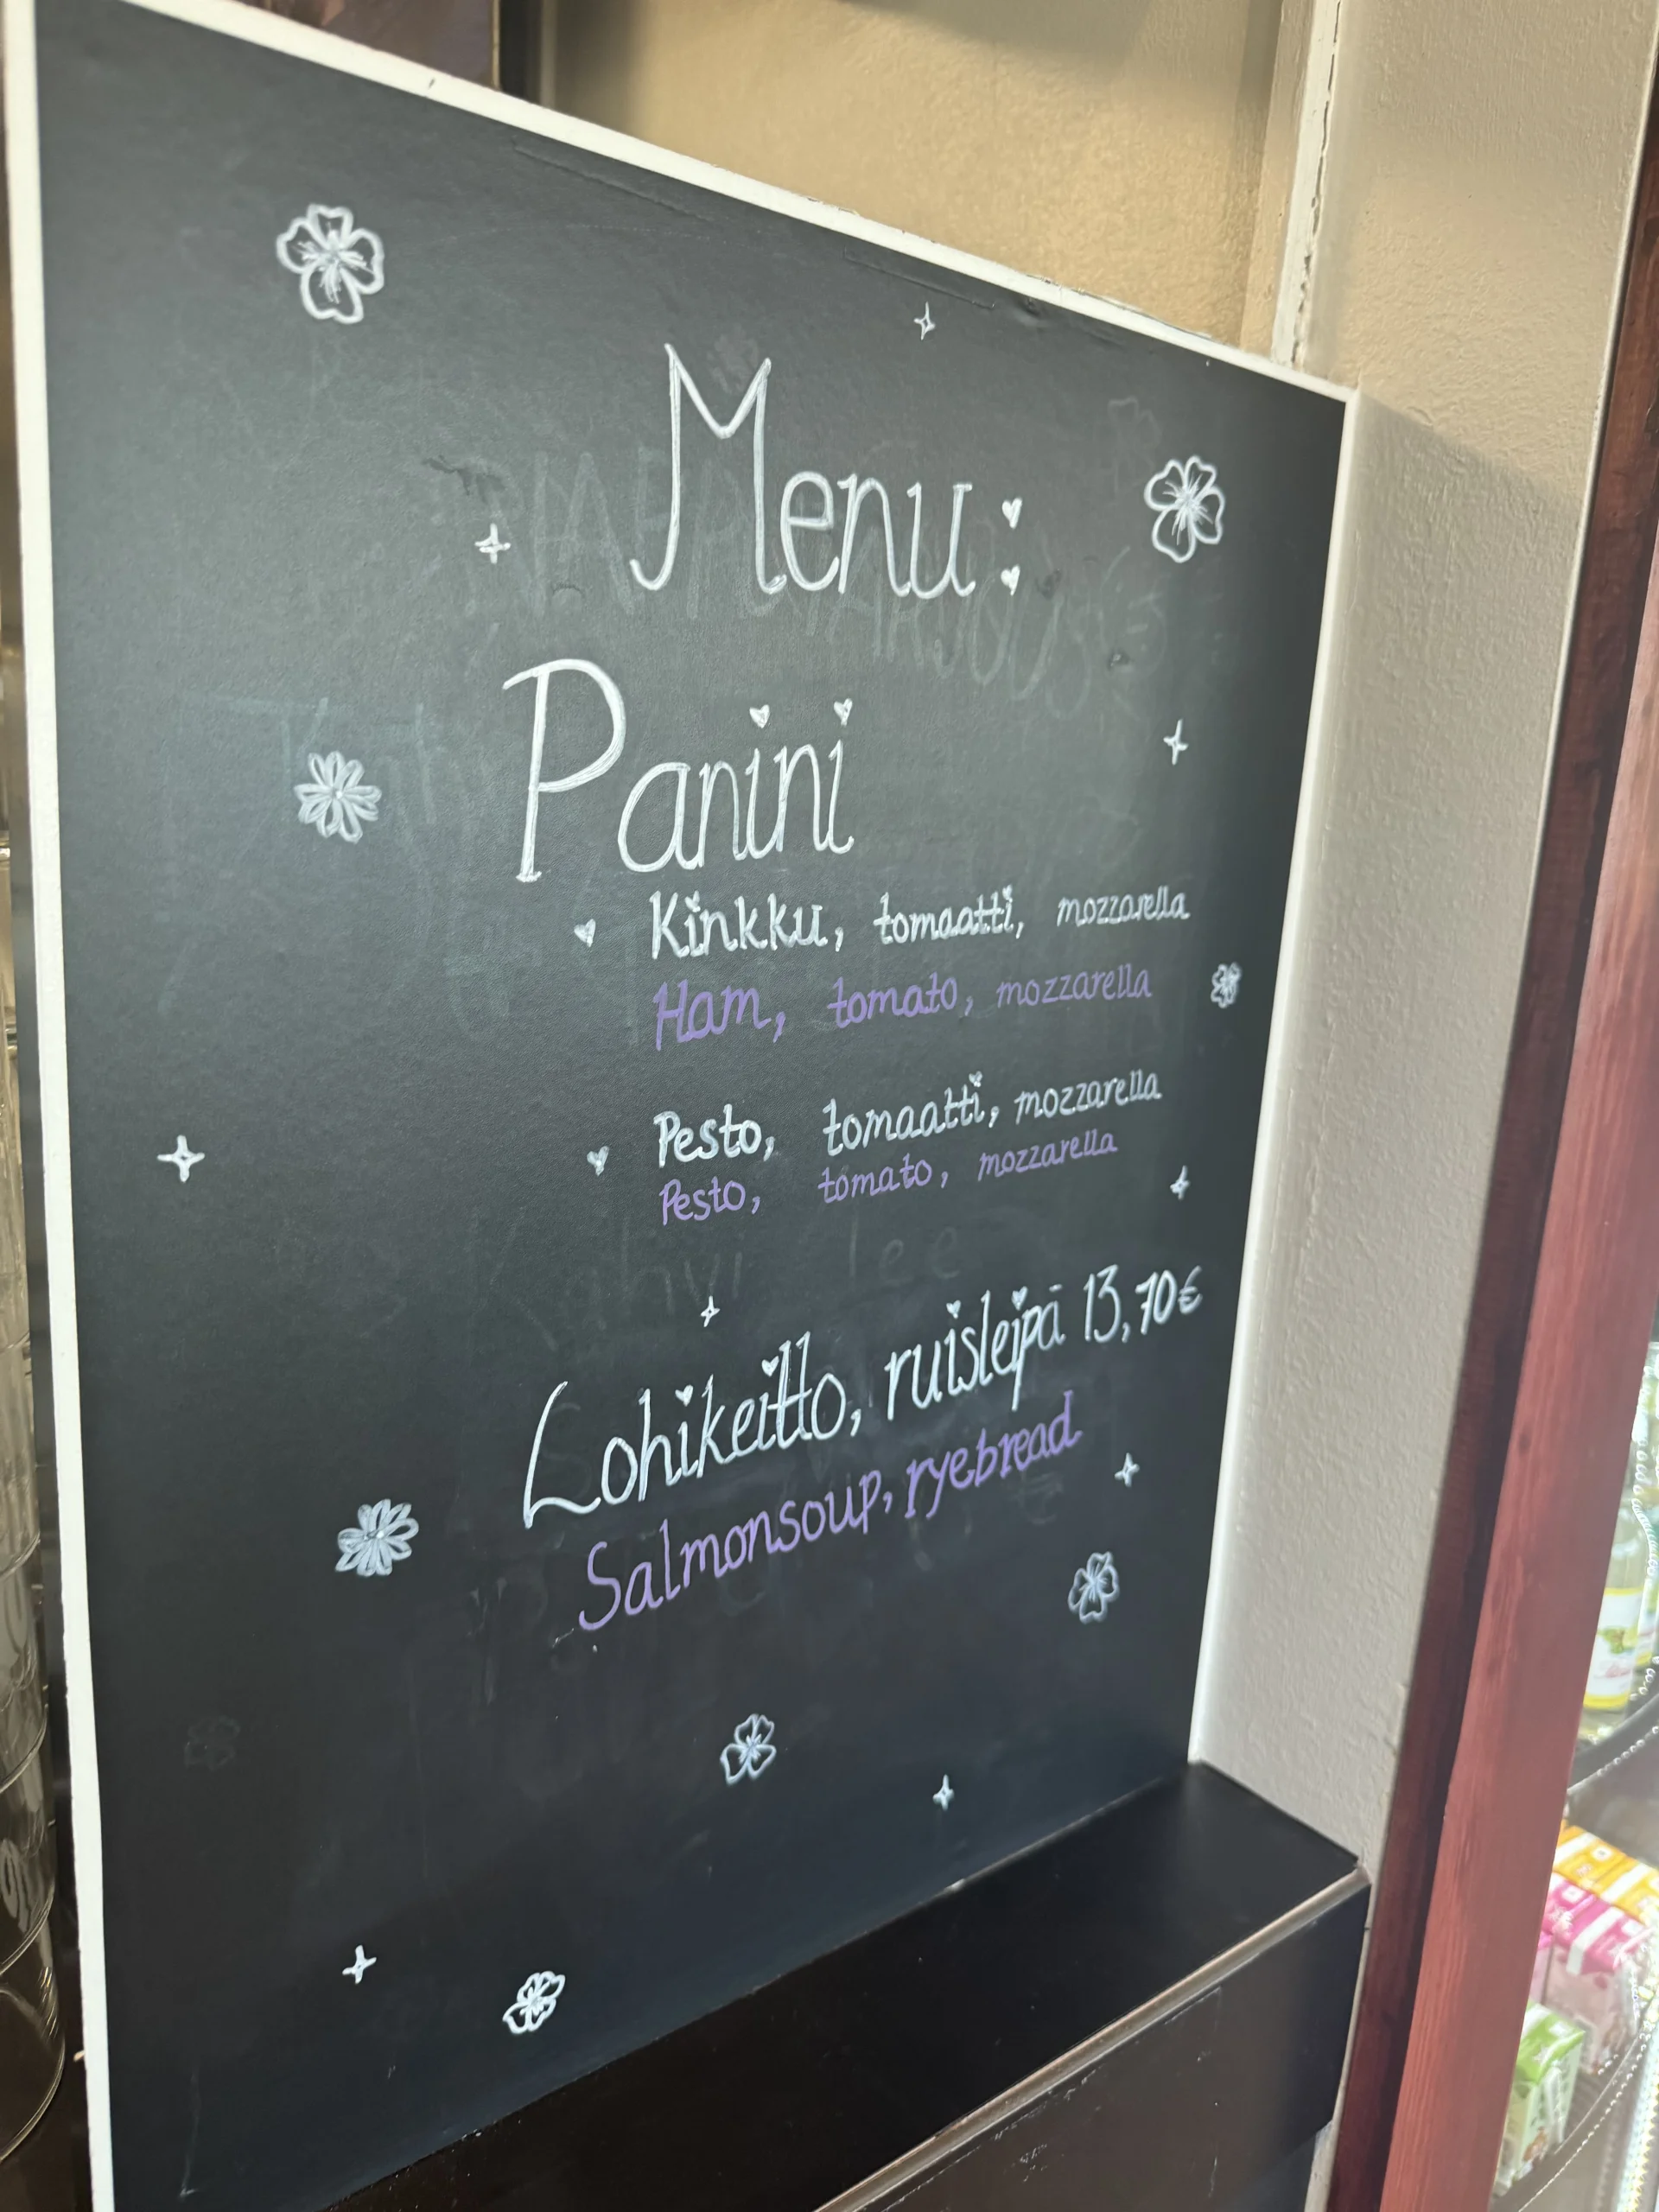 Menu:
Panini
Kinkku, tomaatti, mozzarella
Ham, tomato, mozzarella
Pesto, tomaatti, mozzarella
Pesto, tomato, mozzarella
Lohikeitto, ruisleipä 13,70€
Salmonsoup, ryebread